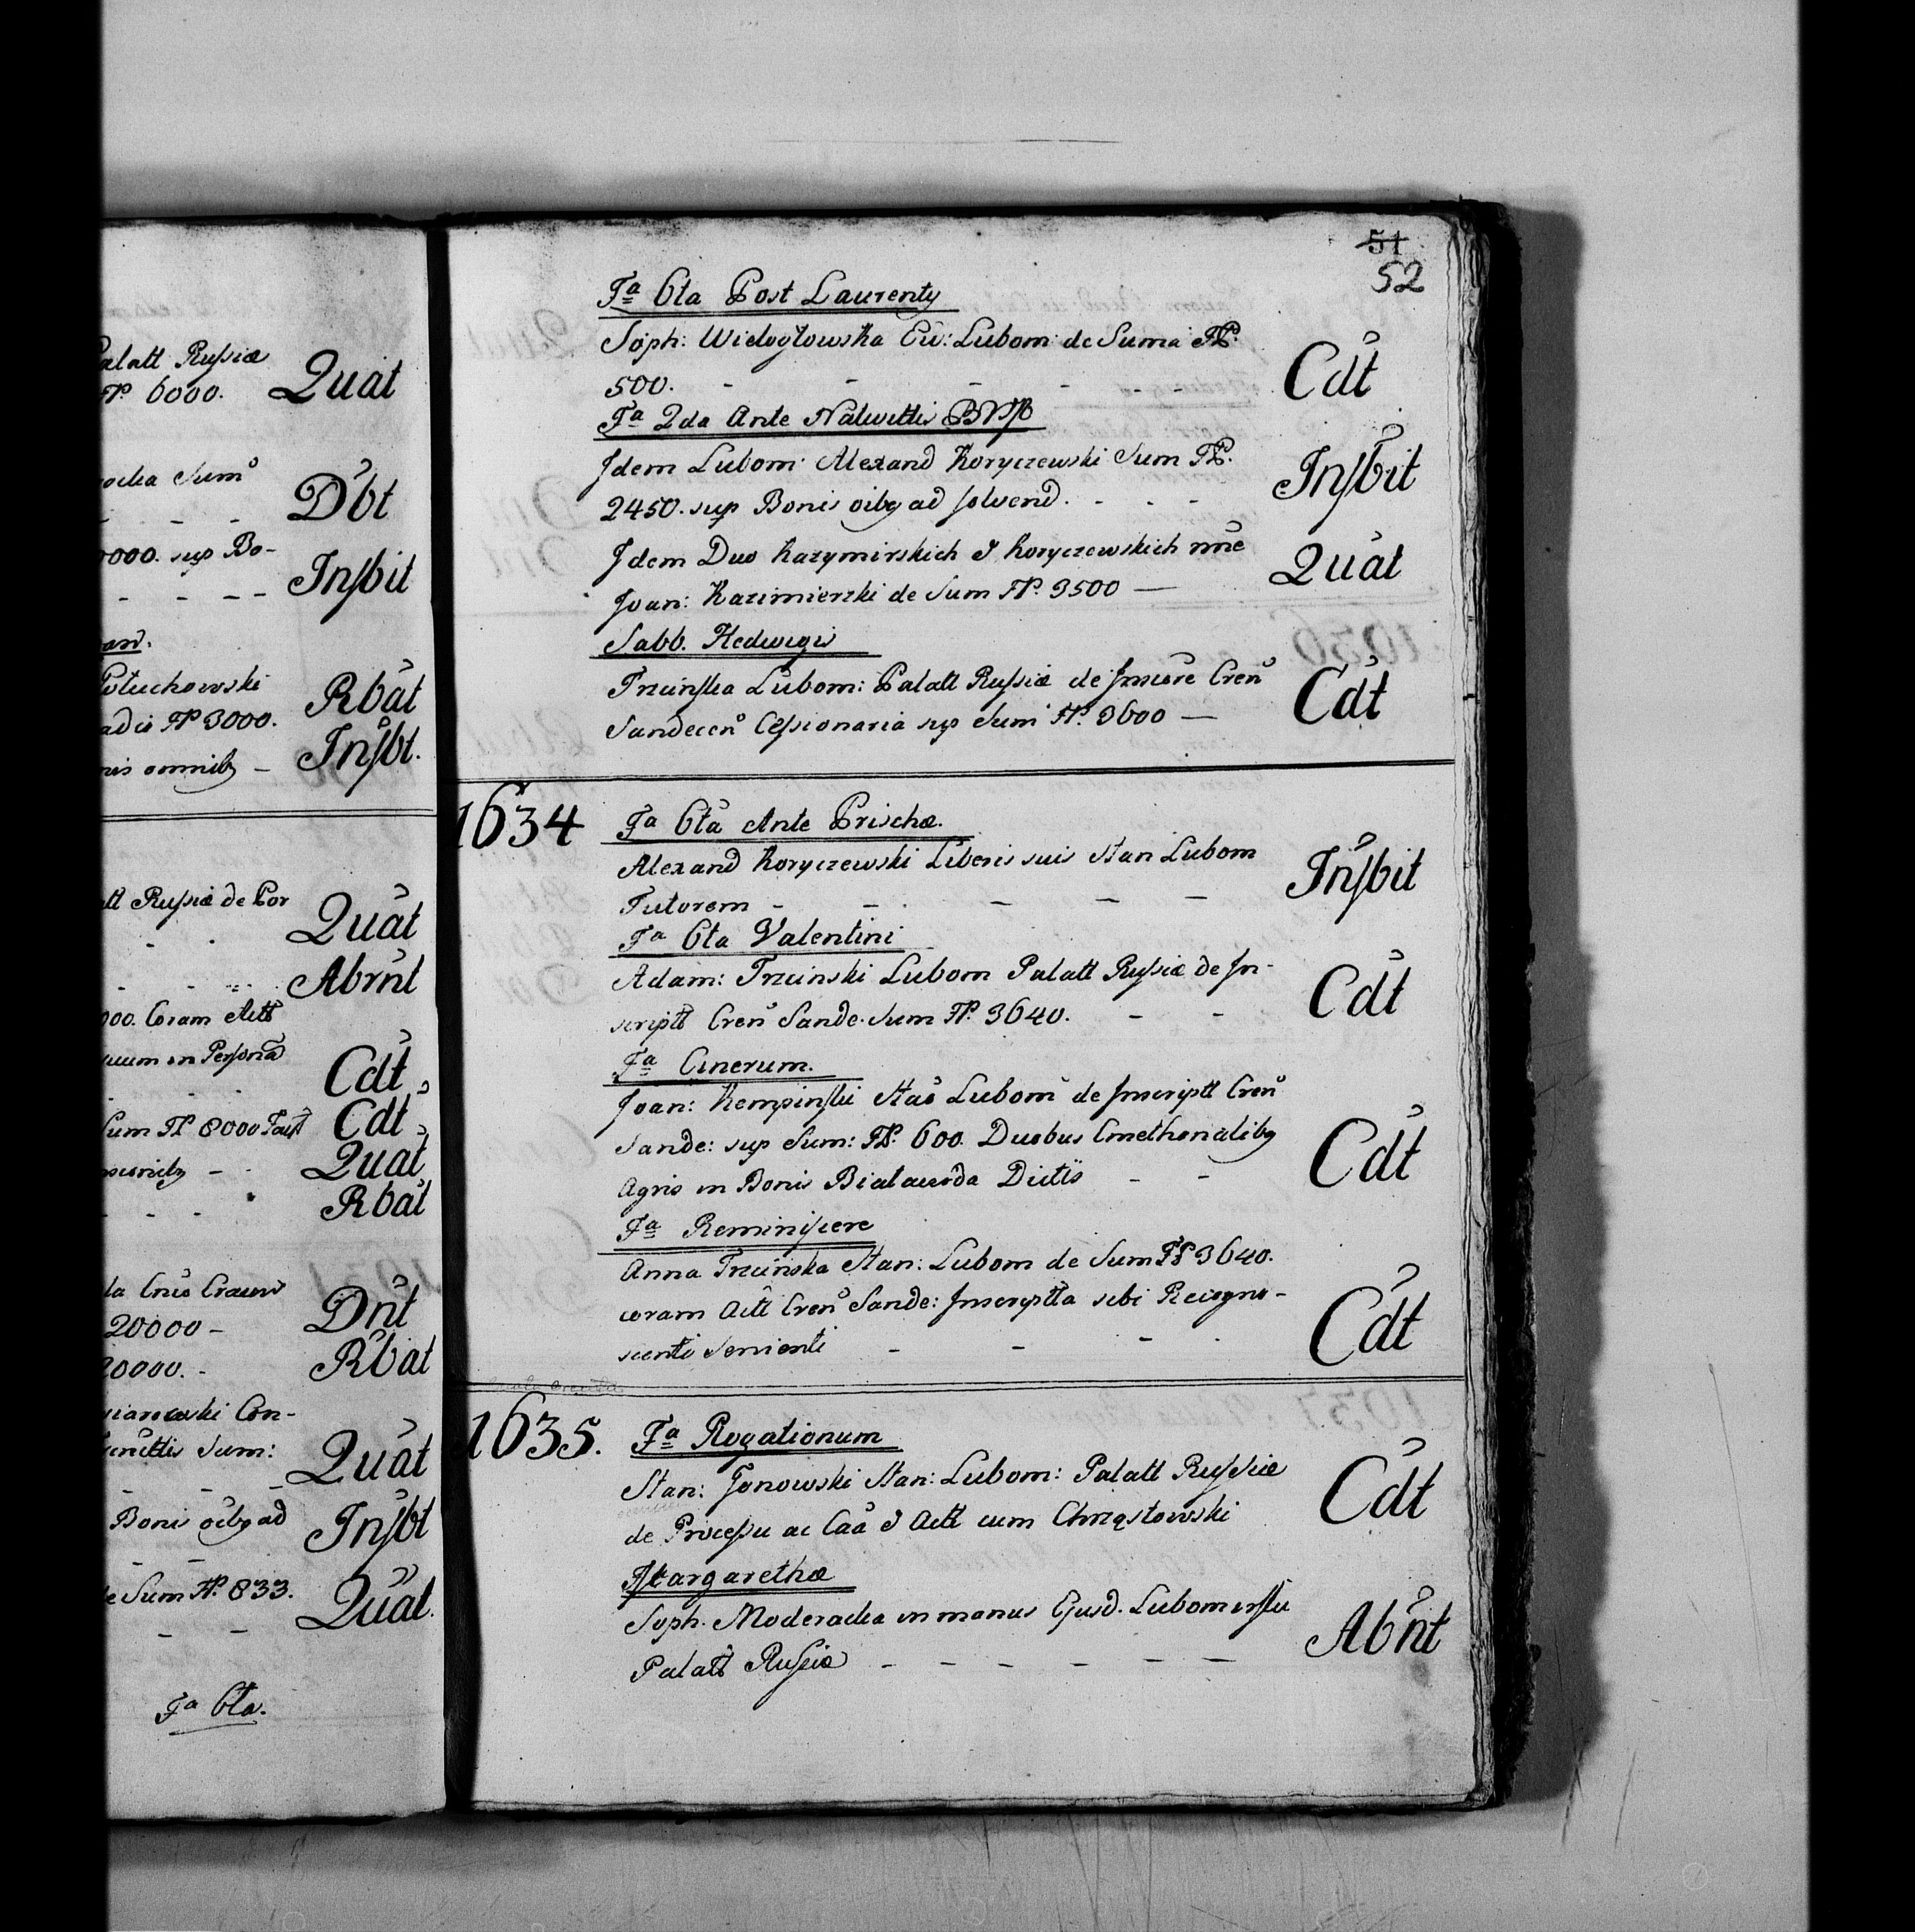 alatt Russiæ
FP. 6000. Quat
Sum
Dbt
0000. sup Bo-
Insbit
Potuchowski
Rbat
adis FP 3000.
Insbt.
nis omnibq
tt Russiæ de Por
Quat
Abrnt
000. Coram Actt
uum in Persona
Cdt
Sum FP 8000
Cdt
Quat
Rbat
20000 –
Dnt
20000. -
Rbat
Con-
Sum:
Quat
Bonis oibq ad
Insbt
de Sum FP. 833.
Quat.
Fa 6ta.
51
52
Fa 6ta Post Laurenty
Soph: Wielogłowska Eid: Lubom: de Suma FP.
500. - - - - - - Cdt
Fa 2da Ante Nativittis BVM
Idem Lubom: Alexand Koryczewski Sum FP.
2450. sup Bonis oibq ad solvend. - - - Insbit
Idem Duo Kazymirskich & Koryczewskich nne
Joan: Kazimierski de Sum FP. 3500 — Quat
Sabb. Hedwigis
Trzcinska Lubom: Palatt Russiæ de Inscre Cren
Sandecen Cessionaria sup Sum FP. 3600 — Cdt
1634 Fa 6ta Ante Priscæ.
Alexand Koryczewski Liberis suis Stan Lubom
Tutorem - - - - - Insbit
Fa 6ta Valentini
Adam: Trzcinski Lubom Palatt Russiæ de In-
scriptt Cren Sande. Sum FP. 3640. - - Cdt
Fa Cinerum.
Joan: Kempinski Stao Lubom de Inscriptt Cren
Sande: sup Sum: FP. 600. Duobus Cmethonalibq
Agris in Bonis Białawoda Dictis - - Cdt
Fa Reminiscere
Anna Trzcinska Stan: Lubom de Sum FP 3640.
coram Actt Cren Sande: Inscriptta sibi Recogno-
scenti servienti - - - Cdt
1635. Fa Rogationum
Stan: Jonowski Stan: Lubom: Palatt Russiæ
de Processu ac Caa & Actt cum Chrząstowski Cdt
Margarethæ
Soph. Moderacka in manus Ejusd. Lubomirski
Palatt Russiæ - - - - - - Abnt